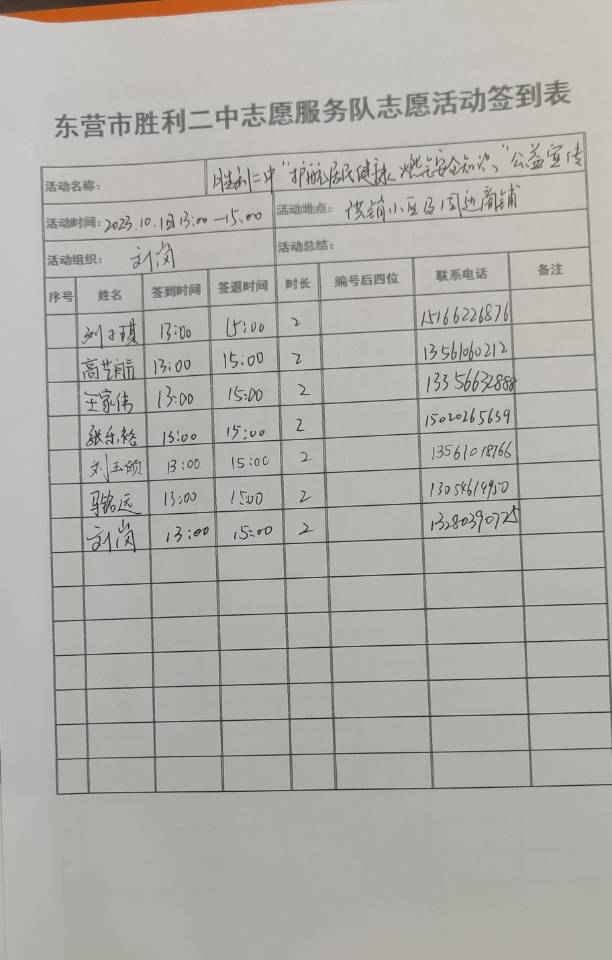 东营市胜利二中志愿服务队志愿活动签到表
活动名称： 胜利二中“护航居民健康、燃气安全知识”公益宣传
活动时间：2023.10.1日13:00—15:00 活动地点：供销小区及周边商铺
活动组织： 刘岗 活动总结：
序号 姓名 签到时间 签退时间 时长 编号后四位 联系电话 备注
刘子琪 13:00 15:00 2 15166226876
高艺航 13:00 15:00 2 13561060212
王家伟 13:00 15:00 2 13356632888
张乐裕 13:00 15:00 2 15020265639
刘玉颂 13:00 15:00 2 13561018766
马铭远 13:00 15:00 2 13054619950
刘岗 13:00 15:00 2 13280390725